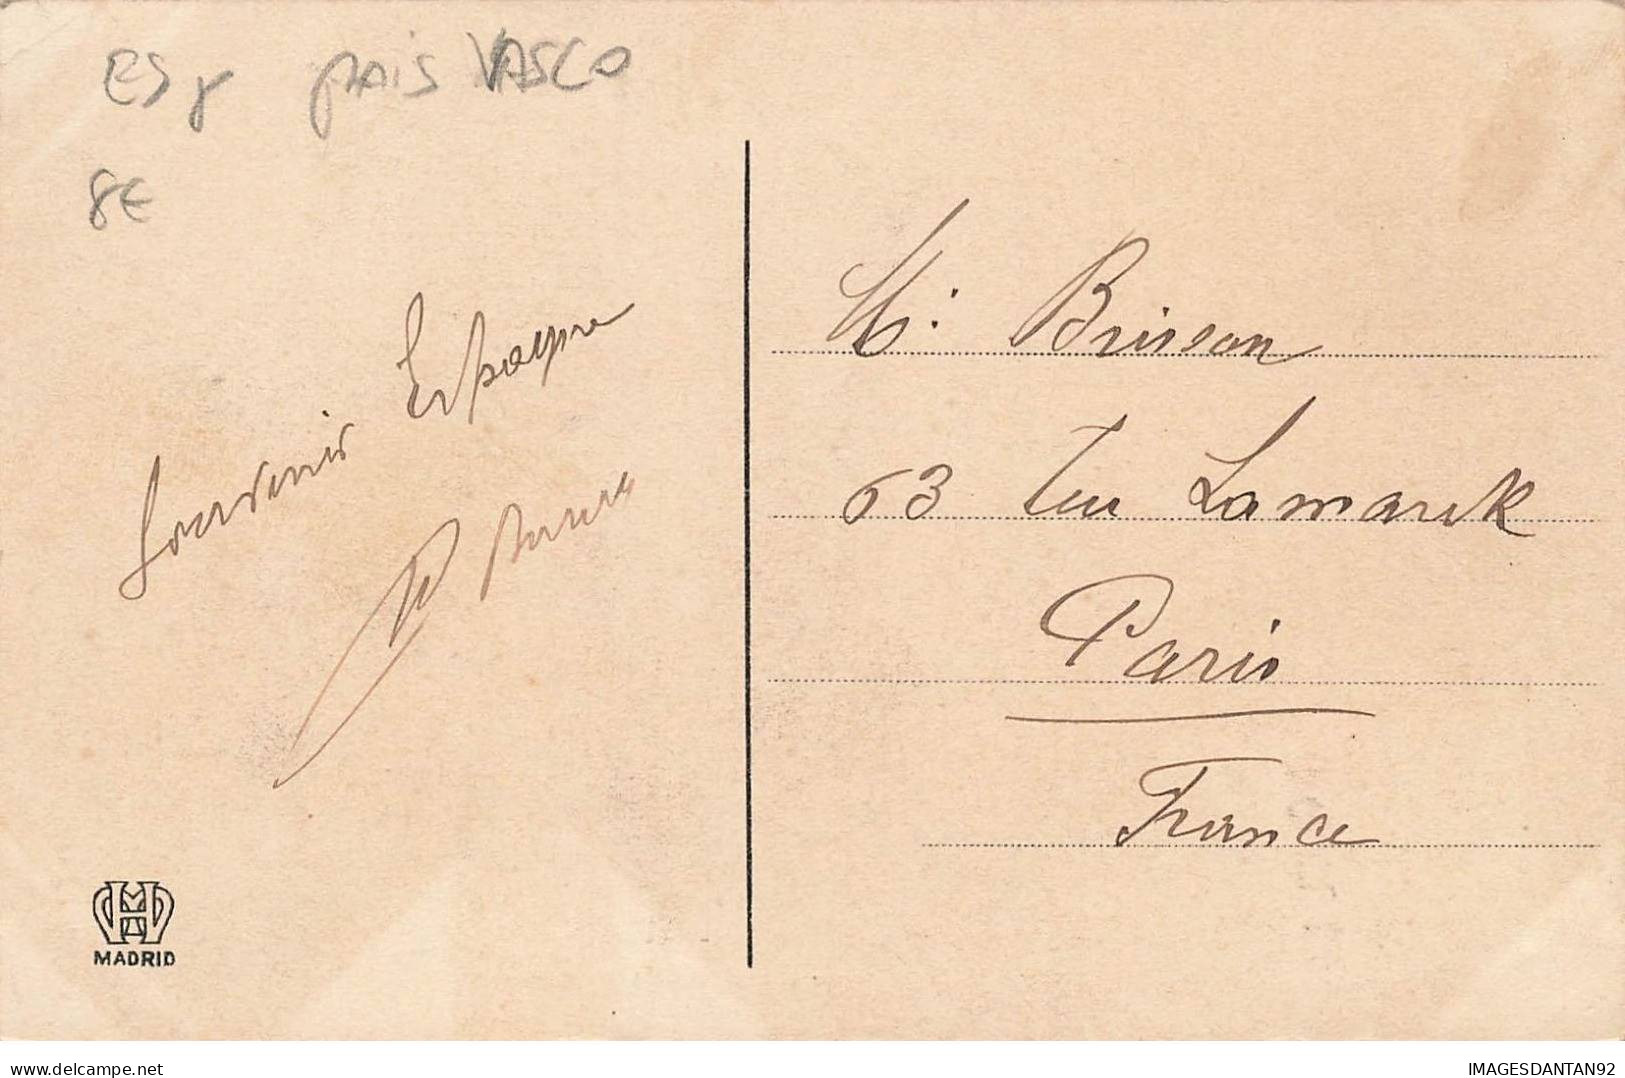 ESP PAIS VASCO
8€
Souvenir Espagne
M. Brisson
63 rue Lamarck
Paris
France
MADRID
www.delcampe.net
IMAGESDANTAN92